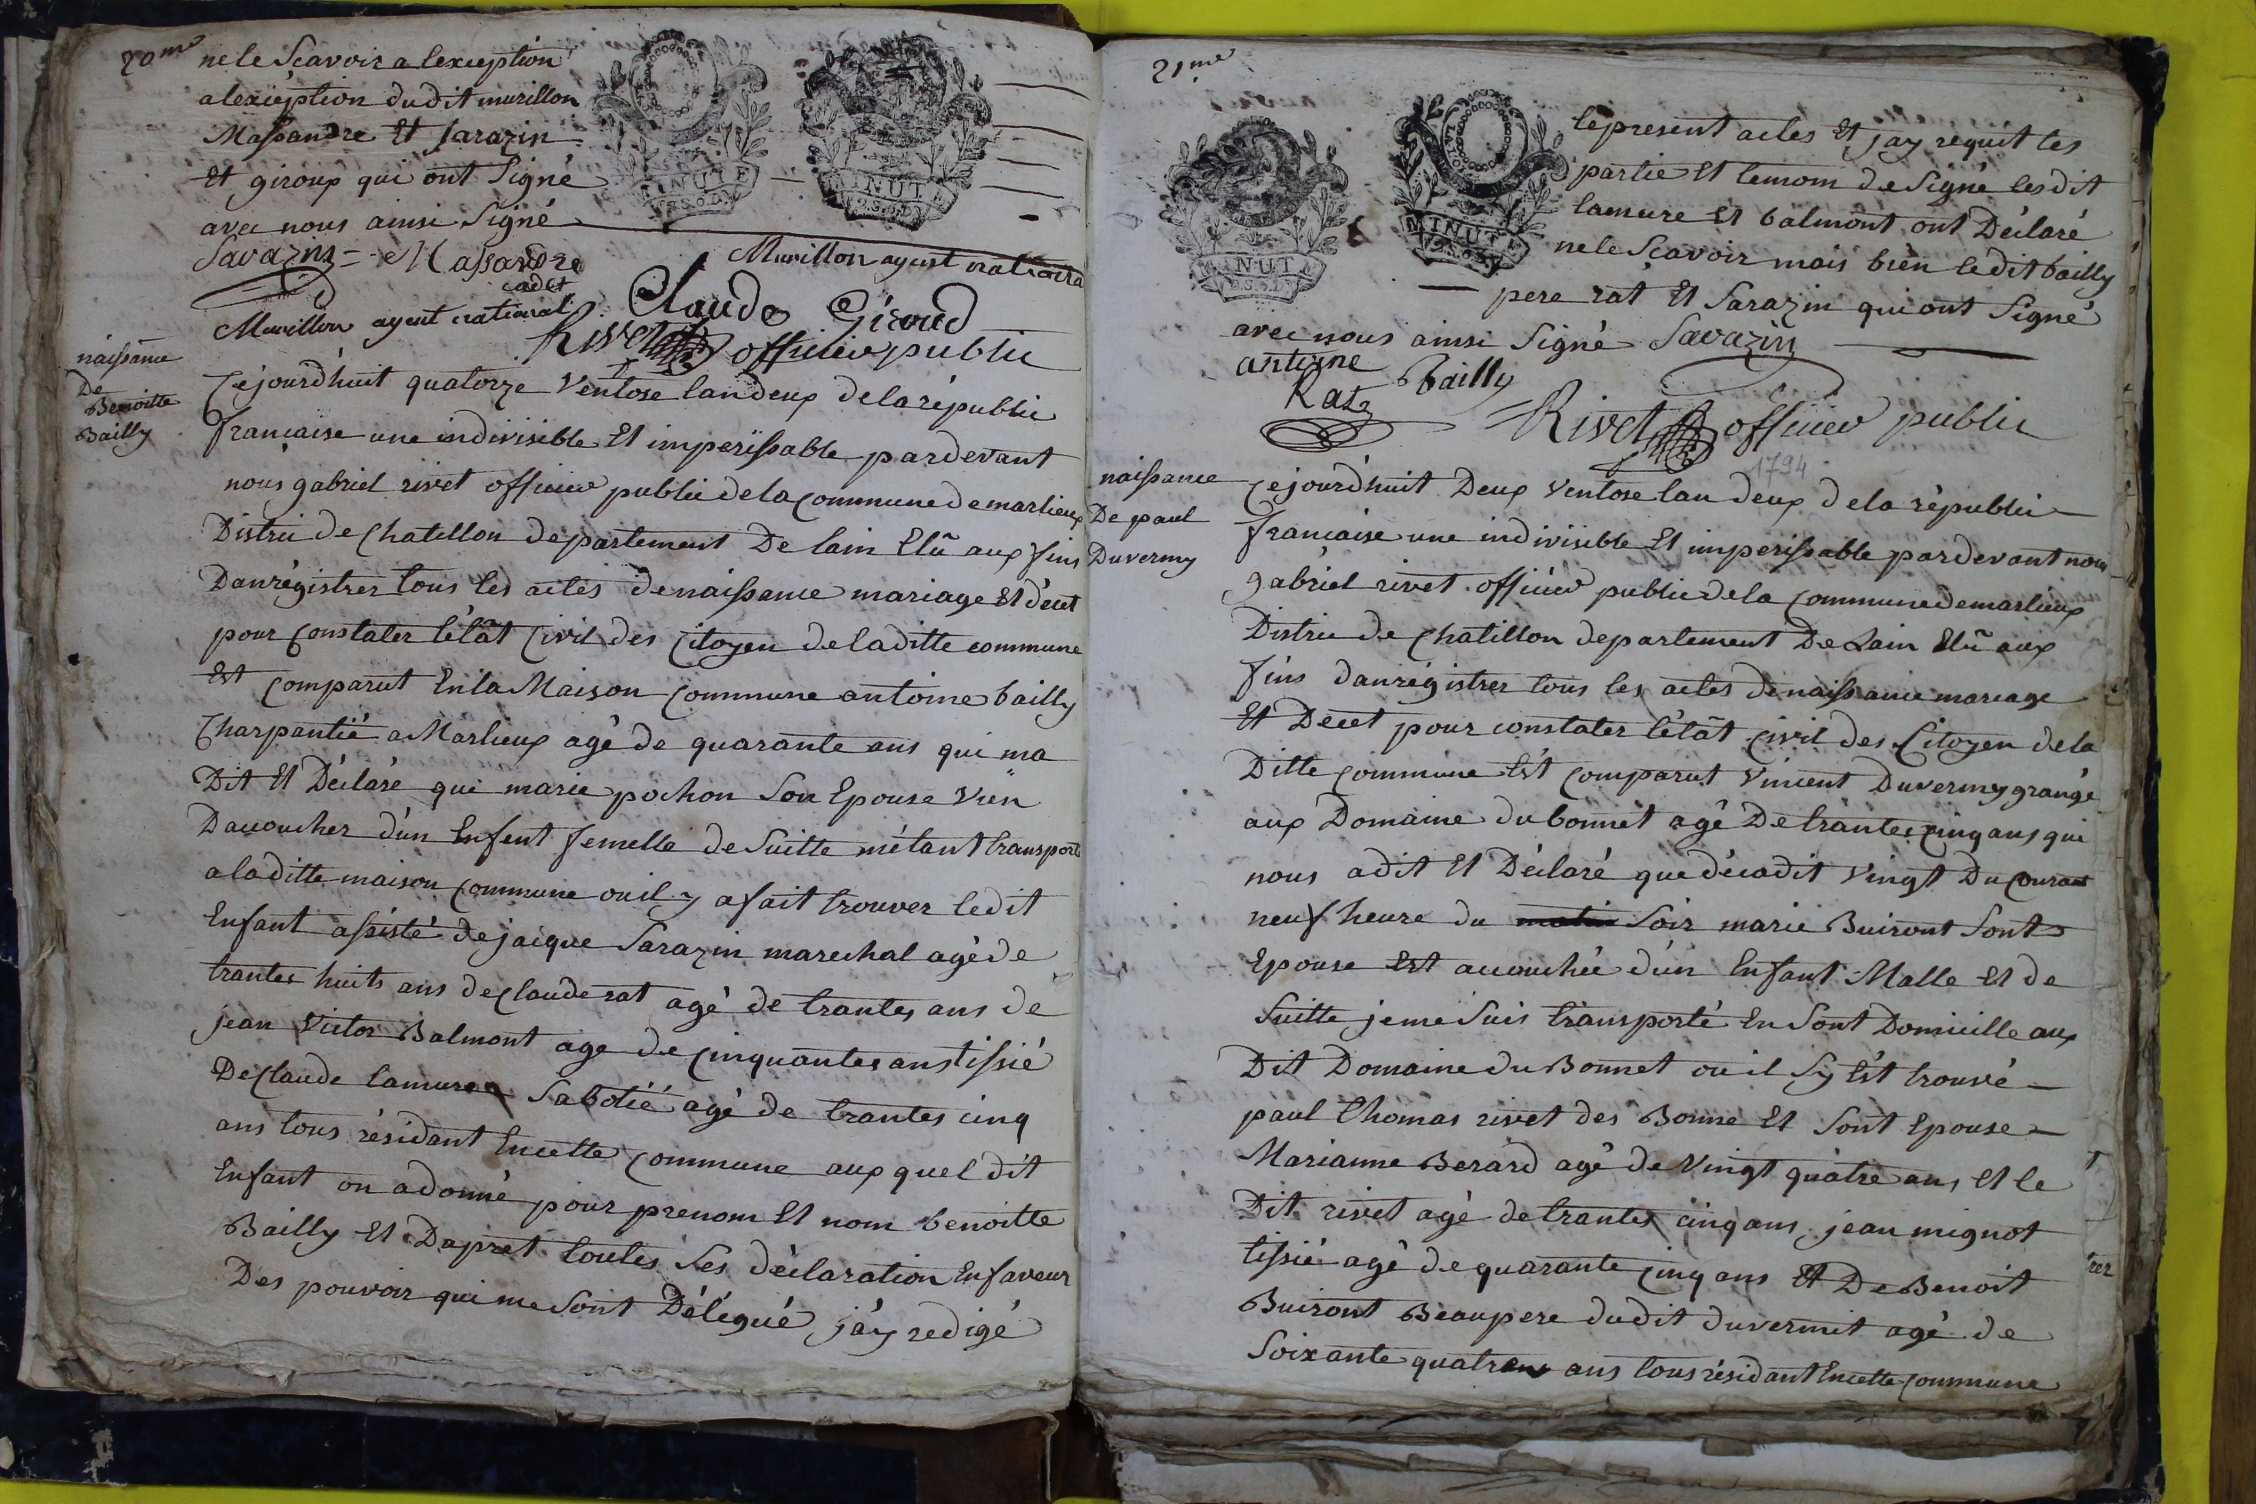 20me
nele Scavoir a lexception
alexception dudit murillon
Massandre Et Sarazin
Et giroux qui ont Signé
avec nous ainsi Signé
MINUTE
2.S.6.D.
MINUTE
2.S.6.D.
Sarazin = Massandre
cadet
Murillon agent national
Murillon agent national
Claude Giroud
Rivet officier public
naissance
De
Benoitte
Bailly
Cejourd'huit quatorze Ventose landeux delarépublic
francaise une indivisible Et imperissable pardevant
nous gabriel rivet officier public dela commune demarlieux
Distric de chatillon departement De lain Elû aux fins
Danrégistrer tous les actes denaissance mariage Et décet
pour constater létât civil des citoyen deladitte commune
Est comparut Enla Maison commune antoine bailly
Charpantié a Marlieux agé de quarante ans qui ma
Dit Et Déclaré que marie pochon Son Epouse vien
Daccoucher d'un Enfent femelle de Suitte métant transporté
aladitte maison commune ouil y afait trouver ledit
Enfant assisté de jacque Sarazin marechal agé de
trantes huits ans de claude rat agé de trantes ans de
jean Victor Balmont age de cinquantes ans tissié
De claude lamure Sabotié agé de trantes cinq
ans tous résidant Encette commune aux quel dit
Enfant on adonné pour prenom Et nom benoitte
Bailly Et Dapret toutes Ses déclaration Enfaveur
Des pouvoir qui me Sont Délégué j'ay redigé
21me
MINUTE
2.S.6.D.
MINUTE
2.S.6.D.
lepresent actes Et jay requit les
partie Et temoin de Signé lesdit
lamure Et balmont ont Déclaré
nele Scavoir mais bien ledit bailly
pere rat Et Sarazin qui ont Signé
avec nous ainsi Signé Sarazin
antoine Bailly
Rat
Rivet officier public
1794
naissance
De paul
Duvermy
Cejourd'huit Deux Ventose lan deux dela républic
francaise une indivisible Et imperissable pardevant nous
gabriel rivet officier public dela commune demarlieux
Distric de chatillon departement De Lain Elû aux
fins danrégistrer tous les actes denaissance mariage
Et Decet pour constater létât civil des Citoyen dela
Ditte commune Est comparut vincent Duvermy grangé
aux Domaine dubonnet agé De trantes cinq ans qui
nous adit Et Déclaré que décadit vingt Du courant
neuf heure du matin Soir marie Buiront Sont
Epouse Est accouchée d'un Enfant Malle Et de
Suitte jeme Suis transporté En Sont Domicille aux
Dit Domaine du Bonnet ouil Sy Est trouvé
paul thomas rivet des Bonne Et Sont Epouse
Marianne Berard agé de Vingt quatre ans Et le
Dit rivet agé de trantes cinq ans jean mignot
tissié agé de quarante cinq ans Et De Benoit
Buiront Beaupere dudit duvermit agé de
Soixante quatre ans tous résidant Encette commune